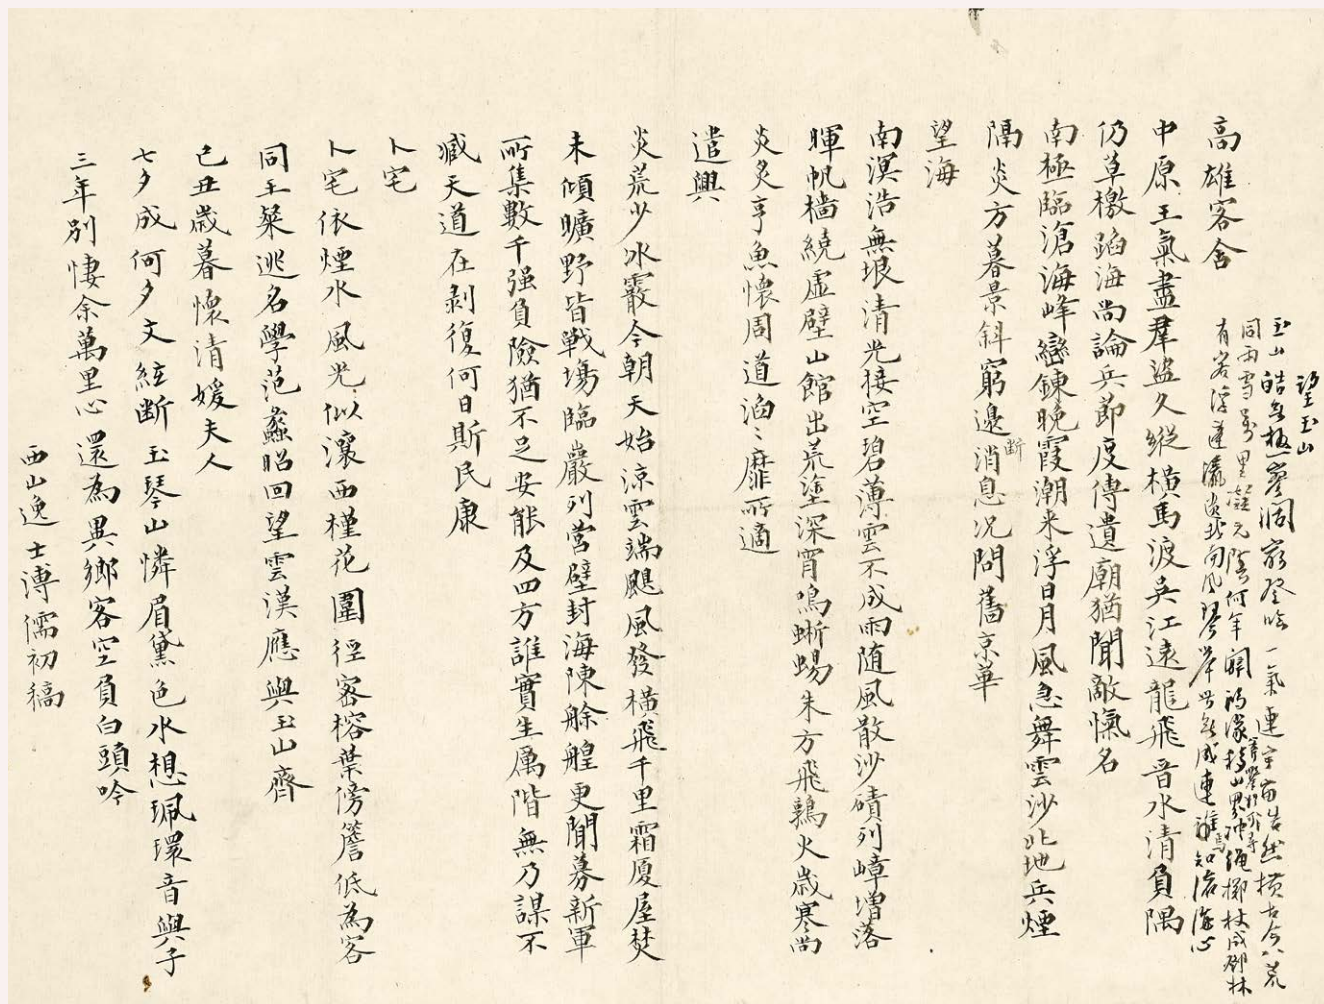 望玉山
玉山皓無極登臨一氣連宇宙浩然橫古今八荒
同雨雪萬里凝元陰何年開擲杖成鄧林
有客浮蓬瀛成連誰知滄海心
高雄客舍
中原王氣盡羣盜久縱橫馬渡吳江遠龍飛晉水清負隅
仍草檄蹈海尚論兵節度傳遺廟猶聞敵愾名
南極臨滄海峰巒鍊晚霞潮来浮日月風急舞雲沙北地兵煙
隔炎方暮景斜窮邊消息況問舊京華
断
望海
南溟浩無垠清光接空碧薄雲不成雨随風散沙磧列嶂增落
暉帆檣繞虛壁山館出荒塗深宵鳴蜥蜴朱方飛鶉火歲寒尚
炎炙亨魚懷周道滔〻靡所適
遣興
炎荒少冰霰今朝天始涼雲端颶風發橫飛千里霜厦屋焚
未傾曠野皆戰塲臨巖列營壁封海陳艅艎更聞募新軍
所集數千强負險猶不足安能及四方誰實生厲階無乃謀不
臧天道在剝復何日斯民康
卜宅
卜宅依煙水風光似瀼西槿花圍徑密榕葉傍簷低為客
同王粲逃名學范蠡昭回望雲漢應與玉山齊
己丑歲暮懷清媛夫人
七夕成何夕文絃断玉琴山憐眉黛色水想珮環音與子
三年別悽余萬里心還為異鄉客空負白頭吟
西山逸士溥儒初稿